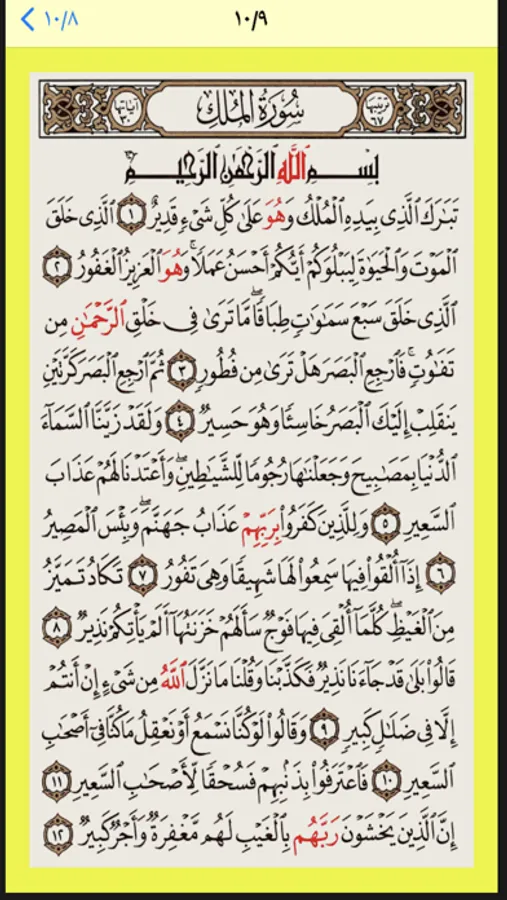 ١٠/٨
١٠/٩
ترتيبها ٦٧
سُورَةُ المُلكِ
آياتها ٣٠
بِسْمِ اللَّهِ الرَّحْمَٰنِ الرَّحِيمِ
تَبَٰرَكَ ٱلَّذِى بِيَدِهِ ٱلْمُلْكُ وَهُوَ عَلَىٰ كُلِّ شَىْءٍ قَدِيرٌ ١ ٱلَّذِى خَلَقَ
ٱلْمَوْتَ وَٱلْحَيَوٰةَ لِيَبْلُوَكُمْ أَيُّكُمْ أَحْسَنُ عَمَلًا ۚ وَهُوَ ٱلْعَزِيزُ ٱلْغَفُورُ ٢
ٱلَّذِى خَلَقَ سَبْعَ سَمَٰوَٰتٍ طِبَاقًا ۖ مَّا تَرَىٰ فِى خَلْقِ ٱلرَّحْمَٰنِ مِن
تَفَٰوُتٍ ۖ فَٱرْجِعِ ٱلْبَصَرَ هَلْ تَرَىٰ مِن فُطُورٍ ٣ ثُمَّ ٱرْجِعِ ٱلْبَصَرَ كَرَّتَيْنِ
يَنقَلِبْ إِلَيْكَ ٱلْبَصَرُ خَاسِئًا وَهُوَ حَسِيرٌ ٤ وَلَقَدْ زَيَّنَّا ٱلسَّمَآءَ
ٱلدُّنْيَا بِمَصَٰبِيحَ وَجَعَلْنَٰهَا رُجُومًا لِّلشَّيَٰطِينِ ۖ وَأَعْتَدْنَا لَهُمْ عَذَابَ
ٱلسَّعِيرِ ٥ وَلِلَّذِينَ كَفَرُوا۟ بِرَبِّهِمْ عَذَابُ جَهَنَّمَ ۖ وَبِئْسَ ٱلْمَصِيرُ
٦ إِذَآ أُلْقُوا۟ فِيهَا سَمِعُوا۟ لَهَا شَهِيقًا وَهِىَ تَفُورُ ٧ تَكَادُ تَمَيَّزُ
مِنَ ٱلْغَيْظِ ۖ كُلَّمَآ أُلْقِىَ فِيهَا فَوْجٌ سَأَلَهُمْ خَزَنَتُهَآ أَلَمْ يَأْتِكُمْ نَذِيرٌ ٨
قَالُوا۟ بَلَىٰ قَدْ جَآءَنَا نَذِيرٌ فَكَذَّبْنَا وَقُلْنَا مَا نَزَّلَ ٱللَّهُ مِن شَىْءٍ إِنْ أَنتُمْ
إِلَّا فِى ضَلَٰلٍ كَبِيرٍ ٩ وَقَالُوا۟ لَوْ كُنَّا نَسْمَعُ أَوْ نَعْقِلُ مَا كُنَّا فِىٓ أَصْحَٰبِ
ٱلسَّعِيرِ ١٠ فَٱعْتَرَفُوا۟ بِذَنۢبِهِمْ فَسُحْقًا لِّأَصْحَٰبِ ٱلسَّعِيرِ ١١
إِنَّ ٱلَّذِينَ يَخْشَوْنَ رَبَّهُم بِٱلْغَيْبِ لَهُم مَّغْفِرَةٌ وَأَجْرٌ كَبِيرٌ ١٢